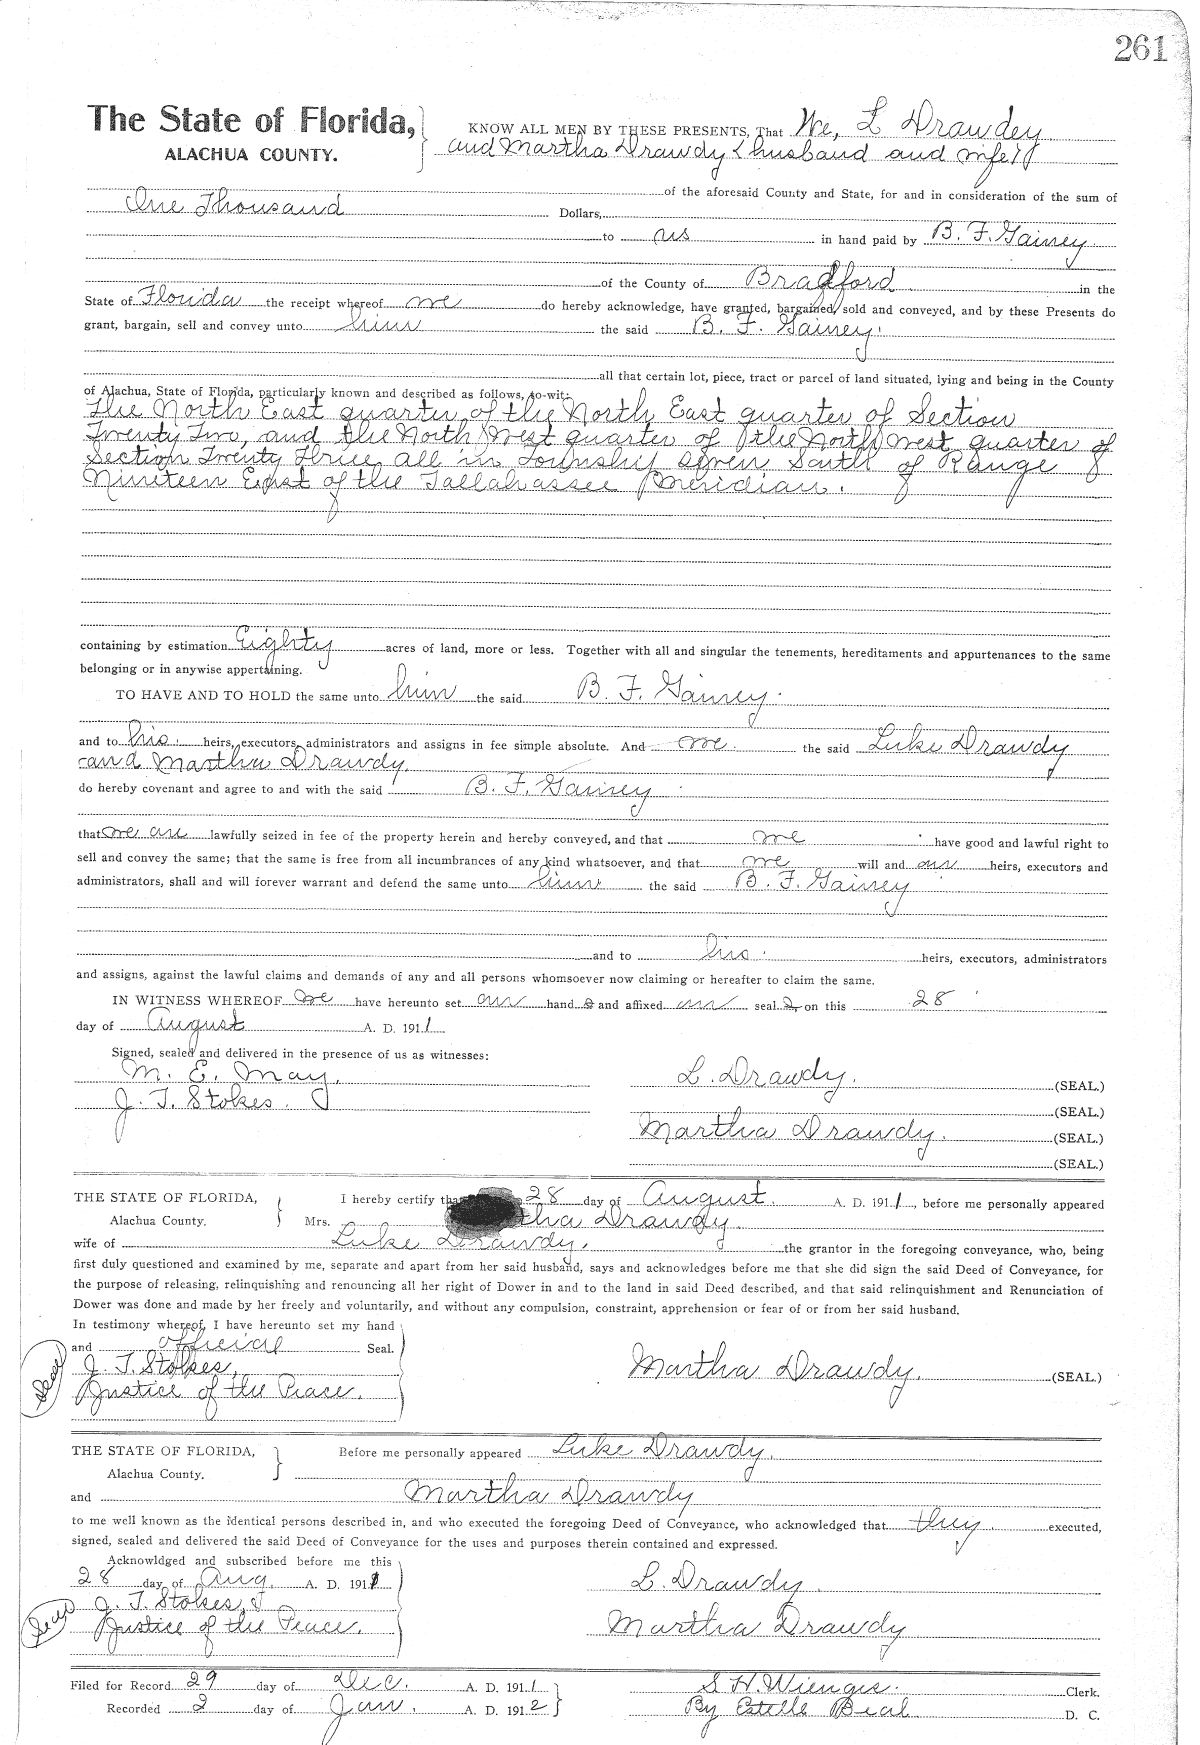 261
The State of Florida, KNOW ALL MEN BY THESE PRESENTS, That We, L Drawdey
ALACHUA COUNTY. and Martha Drawdy (husband and wife)
of the aforesaid County and State, for and in consideration of the sum of
One Thousand Dollars,
to us in hand paid by B. F. Gainey.
of the County of Bradford in the
State of Florida the receipt whereof we do hereby acknowledge, have granted, bargained, sold and conveyed, and by these Presents do
grant, bargain, sell and convey unto him the said B. F. Gainey.
all that certain lot, piece, tract or parcel of land situated, lying and being in the County
of Alachua, State of Florida, particularly known and described as follows, to-wit:
The North East quarter of the North East quarter of Section
Twenty Two, and the North West quarter of the North West quarter of
Section Twenty Three all in Township Seven South of Range
Nineteen East of the Tallahassee Meridian.
containing by estimation Eighty acres of land, more or less. Together with all and singular the tenements, hereditaments and appurtenances to the same
belonging or in anywise appertaining.
TO HAVE AND TO HOLD the same unto him the said B. F. Gainey.
and to his heirs, executors, administrators and assigns in fee simple absolute. And we the said Luke Drawdy
and Martha Drawdy,
do hereby covenant and agree to and with the said B. F. Gainey
that we are lawfully seized in fee of the property herein and hereby conveyed, and that we have good and lawful right to
sell and convey the same; that the same is free from all incumbrances of any kind whatsoever, and that we will and our heirs, executors and
administrators, shall and will forever warrant and defend the same unto him the said B. F. Gainey
and to his heirs, executors, administrators
and assigns, against the lawful claims and demands of any and all persons whomsoever now claiming or hereafter to claim the same.
IN WITNESS WHEREOF we have hereunto set our hand s and affixed our seal s on this 28
day of August A. D. 1911
Signed, sealed and delivered in the presence of us as witnesses:
M. E. May, L. Drawdy. (SEAL.)
J. T. Stokes. (SEAL.)
Martha Drawdy. (SEAL.)
(SEAL.)
THE STATE OF FLORIDA, I hereby certify 28 day of August. A. D. 1911, before me personally appeared
Alachua County. Mrs. Drawdy.
wife of Luke Drawdy, the grantor in the foregoing conveyance, who, being
first duly questioned and examined by me, separate and apart from her said husband, says and acknowledges before me that she did sign the said Deed of Conveyance, for
the purpose of releasing, relinquishing and renouncing all her right of Dower in and to the land in said Deed described, and that said relinquishment and Renunciation of
Dower was done and made by her freely and voluntarily, and without any compulsion, constraint, apprehension or fear of or from her said husband.
In testimony whereof, I have hereunto set my hand
and official Seal.
Seal J. T. Stokes, Martha Drawdy. (SEAL.)
Justice of the Peace.
THE STATE OF FLORIDA, Before me personally appeared Luke Drawdy.
Alachua County.
and Martha Drawdy
to me well known as the identical persons described in, and who executed the foregoing Deed of Conveyance, who acknowledged that they executed,
signed, sealed and delivered the said Deed of Conveyance for the uses and purposes therein contained and expressed.
Acknowldged and subscribed before me this
28 day of Aug. A. D. 1911 L. Drawdy.
J. T. Stokes,
Seal Justice of the Peace. Martha Drawdy
Filed for Record 29 day of Dec. A. D. 1911 S. H. Wienges. Clerk.
Recorded 2 day of Jan. A. D. 1912 By Estelle Beal. D. C.